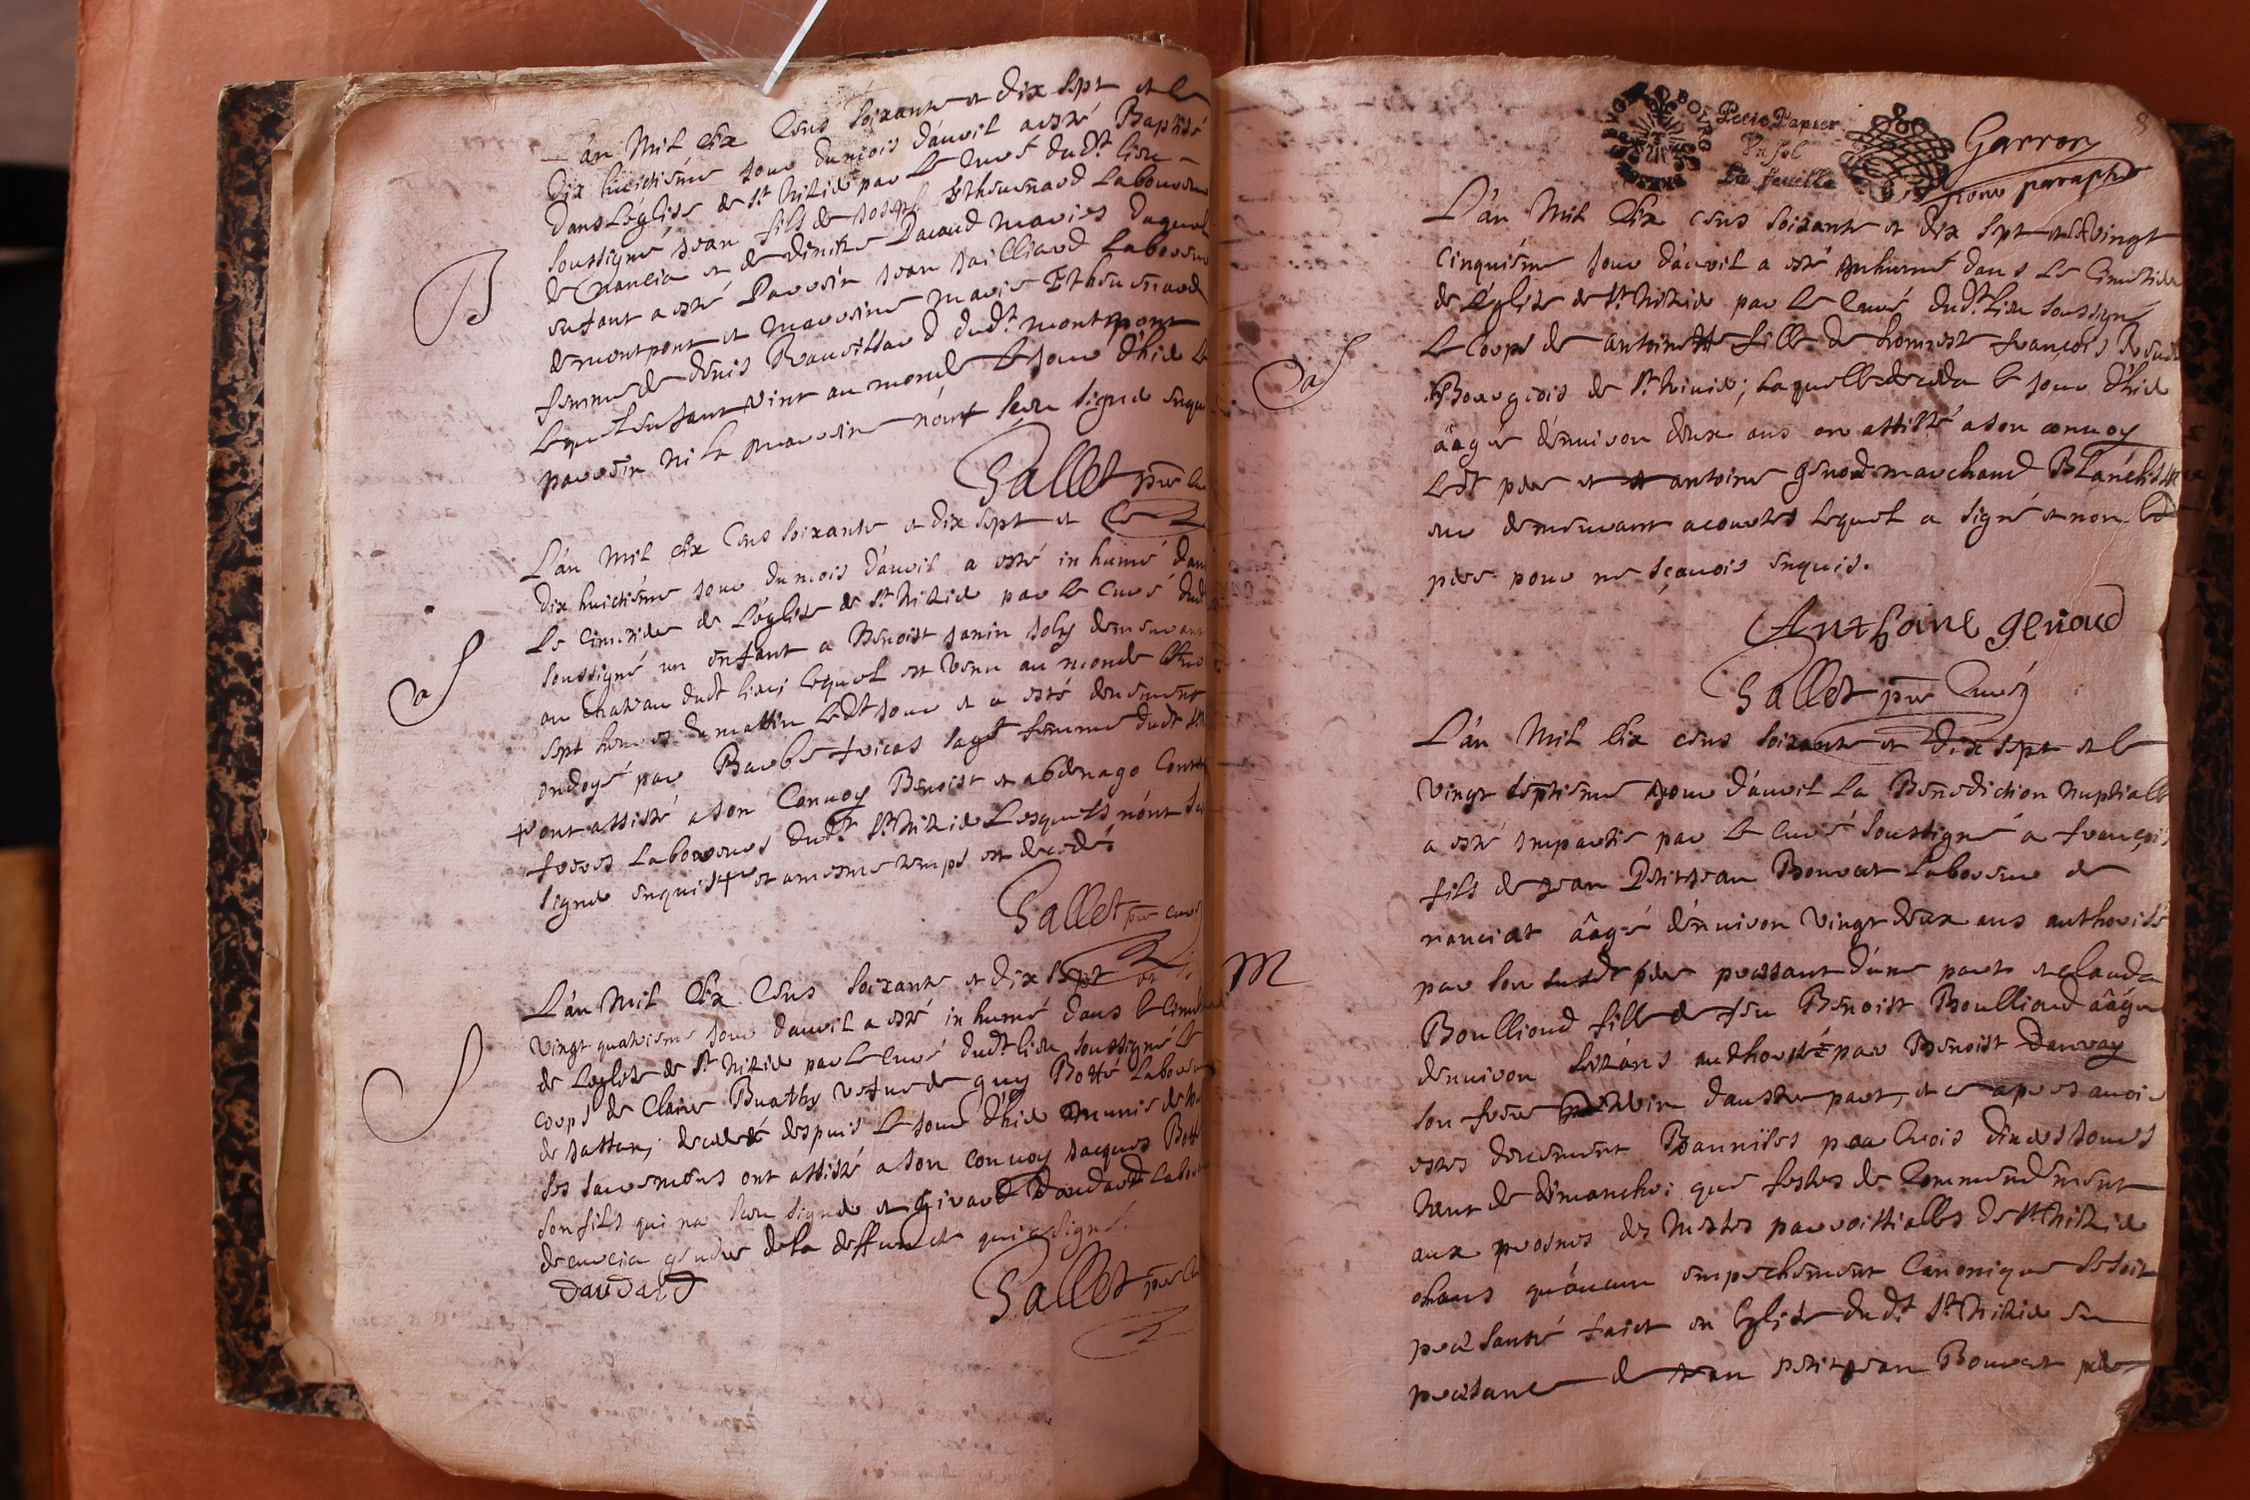 L'an Mil Six Cens soixante et dix sept et le
dix huictiéme jour du mois d'auril a esté Baptisé
dans L'église de St Nizier par le Curé dudt lieu
soussigné Jean fils de Joseph Etheuenard Laboureur
de et de Denise Pacaud mariés duquel
enfant a esté Parrein Jean Jailliard Laboureur
de montpont et marreine Marie Etheuenard
femme de denis dudt montpont
lequel enfant vint au monde le jour d'hier le
parrein ni la marreine n'ont sceu signer enqu
Gallet pre cu
B
L'an Mil Six Cens soixante et dix sept et le
dix huictiéme jour du mois d'auril a esté in humé dans
le Cimetier de L'église de St Nizier par le Curé dudt
soussigné un enfant a Benoist Janin Joly demeurant
au Chateau dudt lieu; lequel est venu au monde
sept heures du mattin ledt jour et a esté deuement
ondoyé par Barbe fricas sage femme dudt St
+ ont assisté a son Conuoy Benoist et abdenago
freres Laboureurs dudt St Nizier Lesquels n'ont sc
signer enquis + et a mesme temps est decedés
Gallet pre curé
S
L'an Mil Six Cens soixante et dix sept et le
vingt quatrieme jour d'auril a esté in humé dans le Cimetier
de Leglise de St Nizier par le Curé dudt lieu soussigné le
corps de Claire Buathy vefue de guy Botté Laboureur
de sattan; decedée despuis le jour d'hier munie de tou
ses sacremens ont assisté a son conuoy Jacques Botté
son fils qui n'a sceu signer et Girard Daudard Labou
de curcia gendre de la deffuncte qui a signé.
Daudard
Gallet pre Cu
S
Petit Papier
Un sol
La feuille
Garron
pour paraphe
L'an Mil Six cens soixante et dix sept et le vingt
Cinquiéme jour d'auril a esté inhumé dans le Cimetier
de L'église de St Nizier par le Curé dudt lieu soussigné
le Corps de antoinette fille de honneste françois
Bourgeois de St Nizier; laquelle deceda le jour d'hier
âagée d'enuiron deux ans on assisté a son conuoy
ledt pere et antoine genod marchand
demeurant a couches lequel a signé et non led
pere pour ne sçauoir enquis.
Anthoine genod
Gallet pre Curé
S
L'an Mil Six cens soixante et dix sept et le
vingt septiéme jour d'auril La Benediction nuptialle
a esté impartie par le Curé soussigné a françois
fils de Jean Petitjean Bouuat Laboureur de
nanciat âagé d'enuiron vingt deux ans authorisé
par son susdt pere presant d'une parte et clauda
Boullioud fille de feu Benoist Boullioud âagée
denuiron seizans authorisée par Benoist Daruay
son frere d'austre part, et ce apres auoir
estes deuement Bannises par trois diuers jours
tant de dimanche; que festes de Commendement
aux prosnes des Messes parroissialles de St Nizier
sans qu'aucun empechement Canonique se soit
presenté faict en Eglise dudt St Nizier en
presance de Jean petitjean Bouuat pere
M